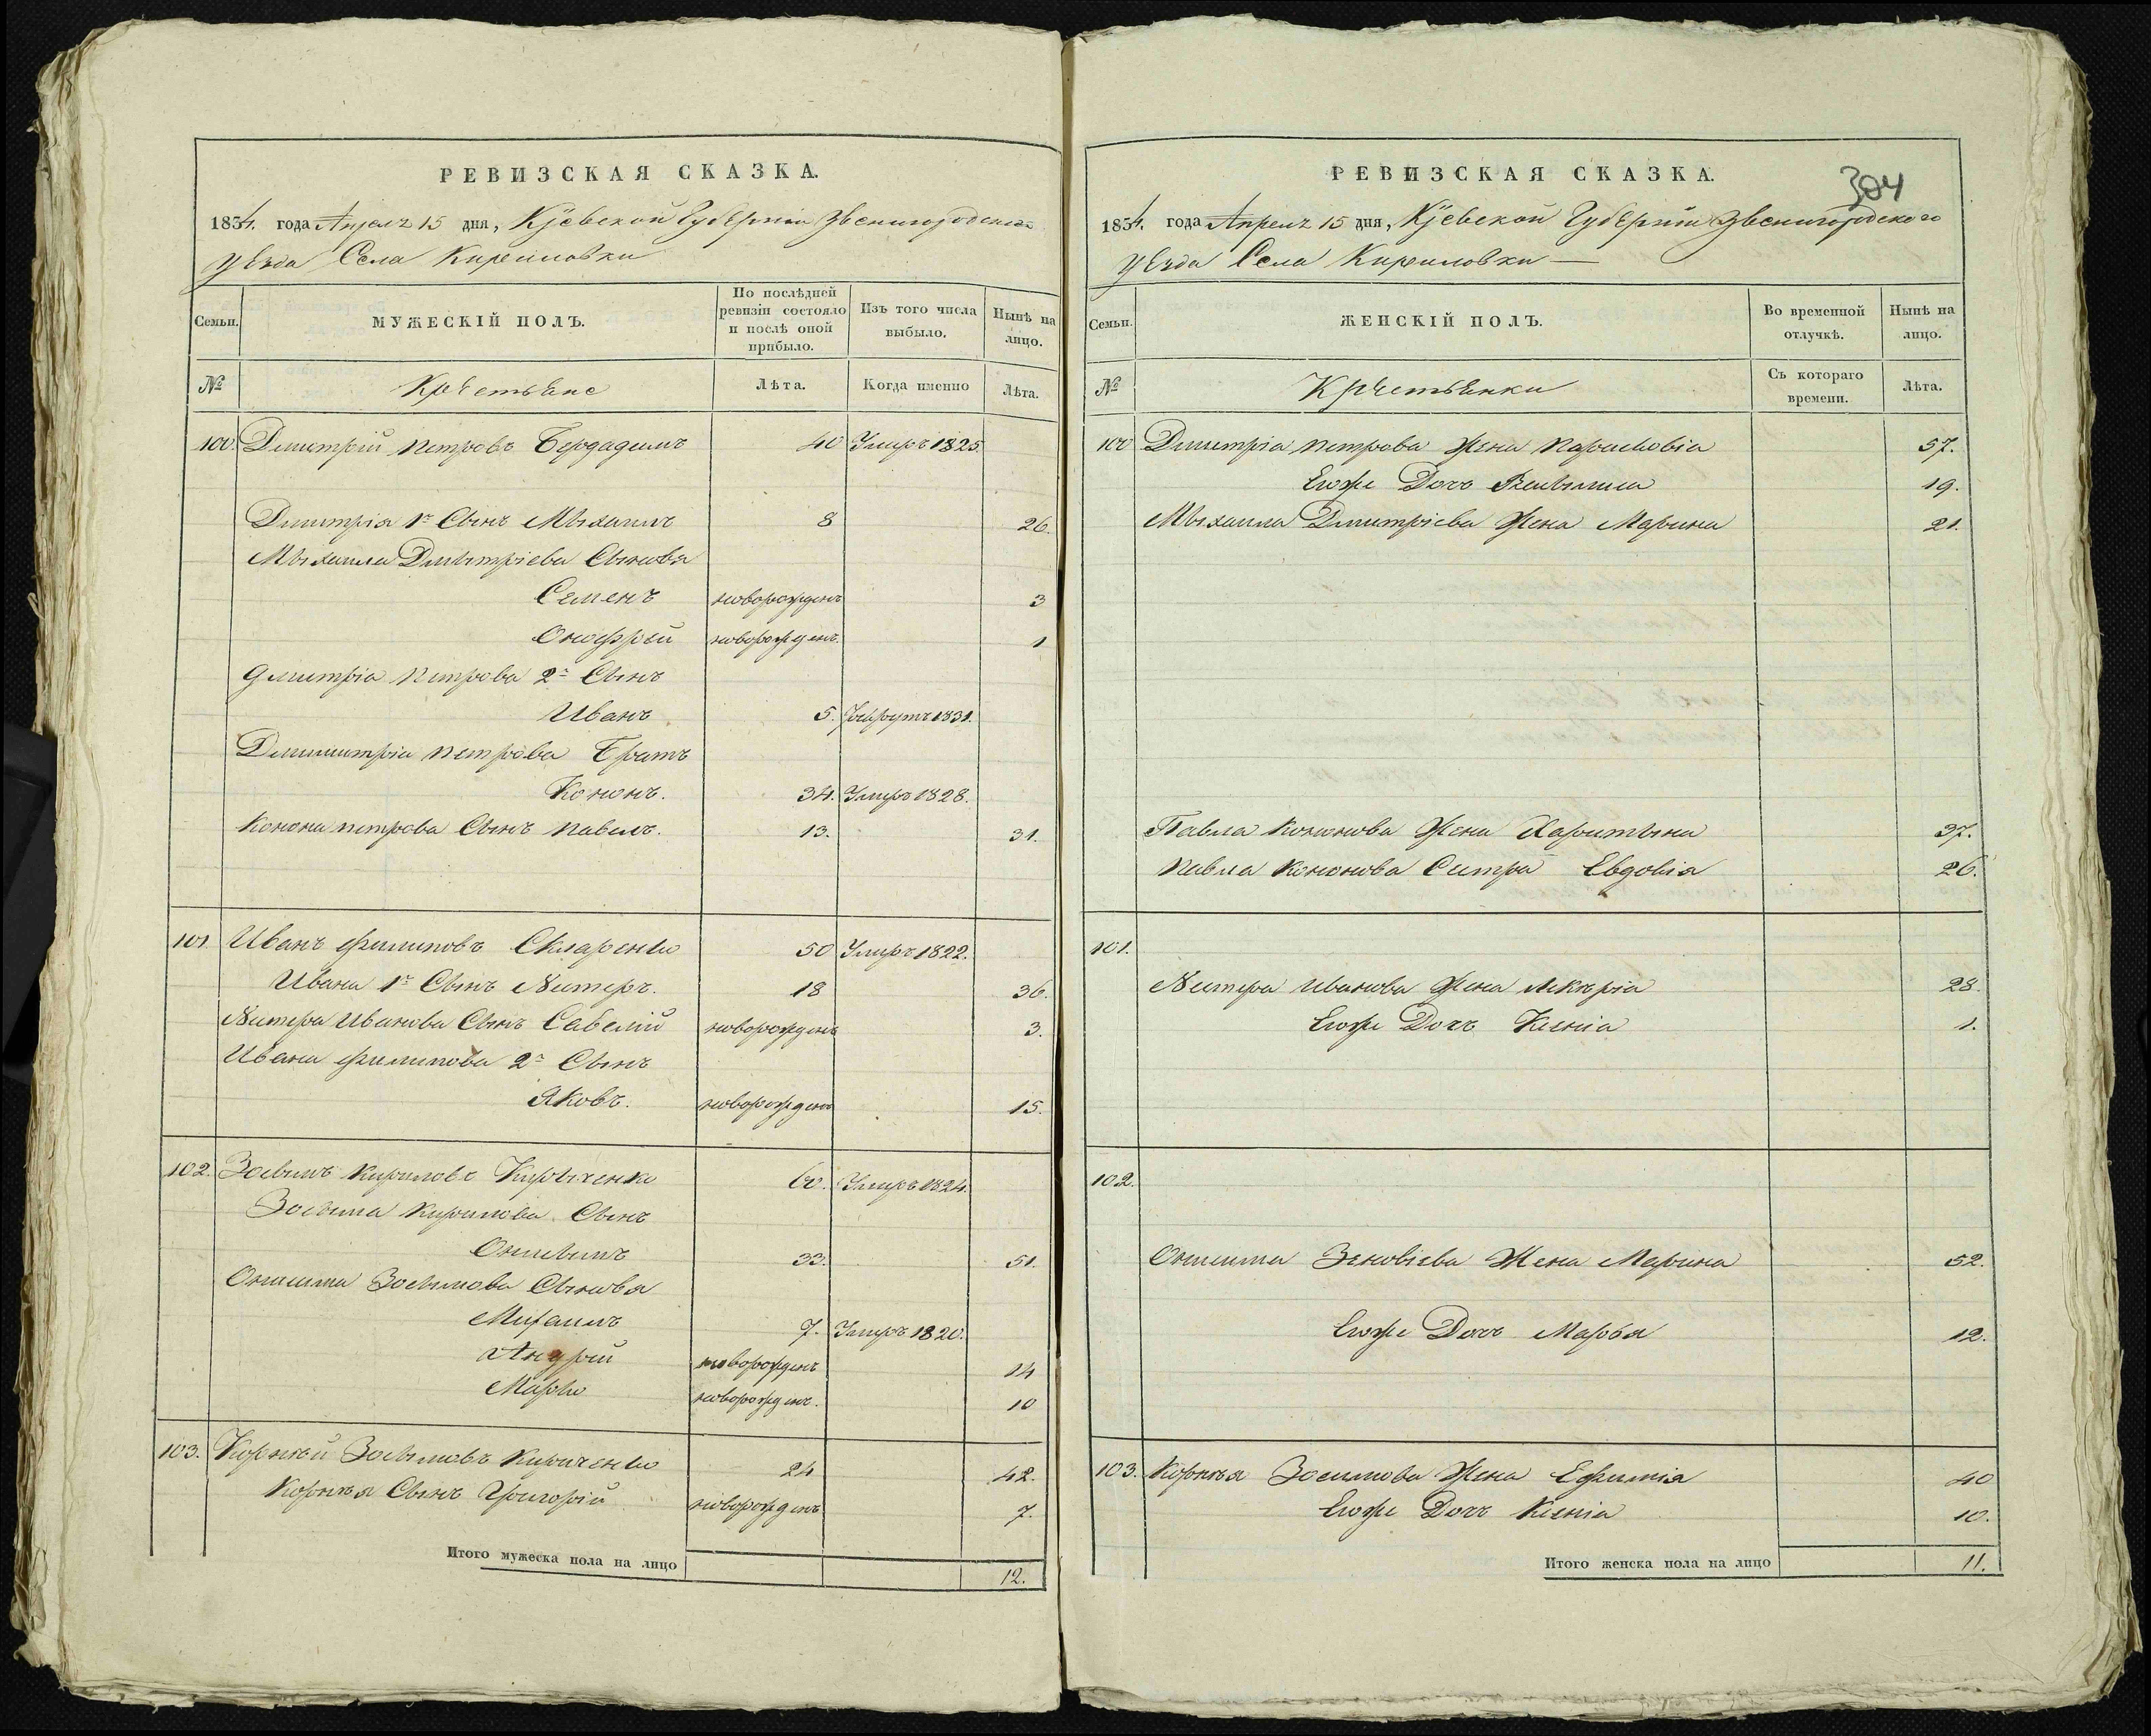 РЕВИЗСКАЯ СКАЗКА.
1834. года Апрелъ 15 дня, Кіевской Губерніи Звенигородскаго
уезда Села Кирилловки
Семьи.
МУЖЕСКІЙ ПОЛЪ.
По послѣдней ревизіи состояло и послѣ оной прибыло.
Изъ того числа выбыло.
Нынѣ на лицо.
№
Лѣта.
Когда именно
Лѣта.
100. Дмитрій Петровъ 40 Умеръ 1825.
Дмитрія 1й Сынъ Мыхаилъ 8 26.
Мыхаила Дмытріева Сыновя
Семенъ новорожденъ 3
Онофрей новорожденъ. 1
Дмитрія Петрова 2й Сынъ
Иванъ 5. 1831.
Дмитрія Петрова Братъ
Кононъ. 34. Умеръ 1828.
Конона Петрова Сынъ Павелъ. 13. 31.
101. Иванъ Филиповъ Скляренко 50 Умеръ 1822.
Ивана 1й Сынъ Нестеръ. 18 36.
Нестера Иванова Сынъ Савелій новорожденъ 3.
Ивана Филипова 2й Сынъ
Яковъ. новорожденъ 15.
102. Зосымъ Кириловъ Кирыченко 60. Умеръ 1824.
Зосыма Кирилова Сынъ
Онисымъ 33. 51.
Онисима Зосымова Сыновя
Михаилъ 7. Умеръ 1820.
Андрей новорожденъ 14
Марко новорожденъ. 10
103. Корней Зосымовъ Кириченко 24 42.
Корнея Сынъ Григорій новорожденъ 7.
Итого мужеска пола на лицо 12.
РЕВИЗСКАЯ СКАЗКА.
304
1834. года Апрелъ 15 дня, Кіевской Губерніи Звенигородского
уезда Села Кириловки
Семьи.
ЖЕНСКІЙ ПОЛЪ.
Во временной отлучкѣ.
Нынѣ на лицо.
№
Съ котораго времени.
Лѣта.
100 Дмитрія Петрова Жена Парасковія 57.
Егоже Дочъ 19.
Мыхаила Дмитріева Жена Марина 21.
Павла Кононова Жена Харитына 37.
Павла Кононова Систра Евдокія 26.
101.
Нестера Иванова Жена 28.
Егоже Дочъ Ксенія 1.
102.
Онисима Зеновіева Жена Марина 52.
Егоже Дочъ Марья 12.
103. Корнея Зосимова Жена Ефимія 40
Егоже Дочъ Ксенія 10.
Итого женска пола на лицо 11.